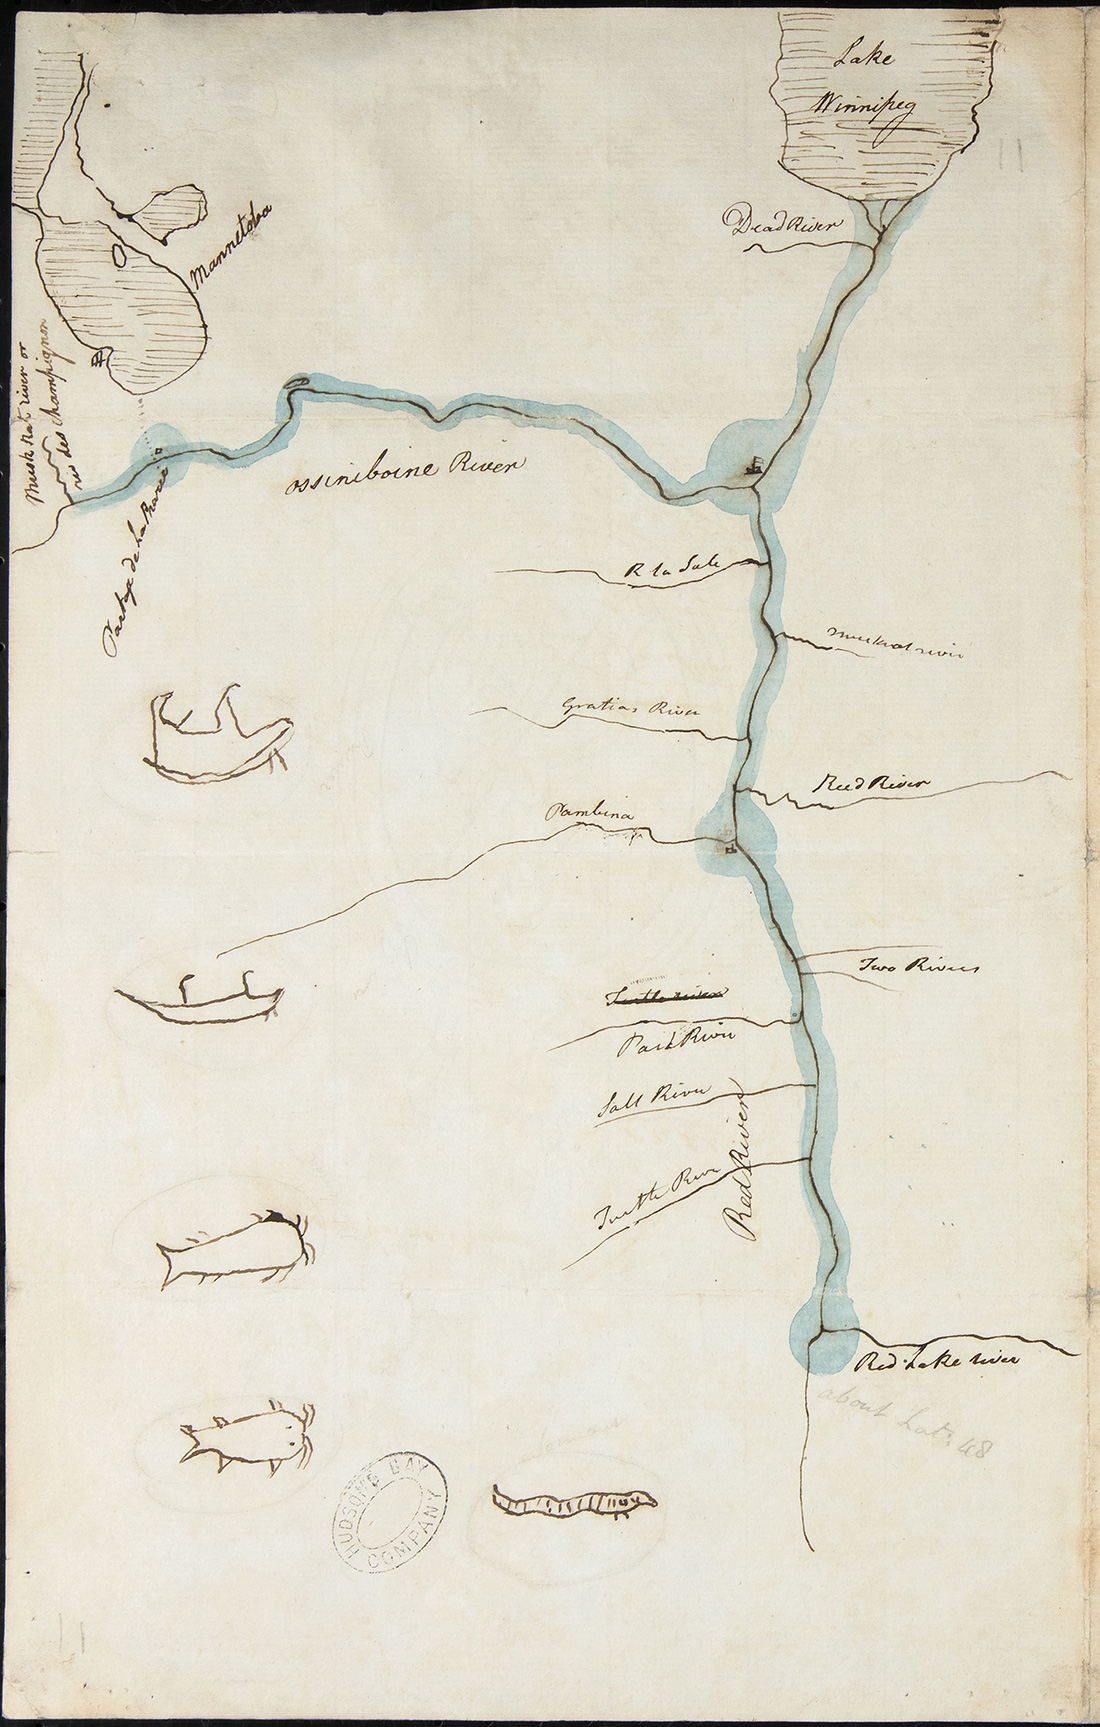 Lake
Winnipeg
Dead River
Mannetoba
Musk Rat river or
riv des champignon
ossiniboine River
Portage de la Prairie
R la Sale
Muskrat river
Gratias River
Reed River
Pambina
Two Rivers
Turtle river
Park River
Salt River
Red River
Turtle River
Red Lake river
about Lat: 48
HUDSON'S BAY
COMPANY